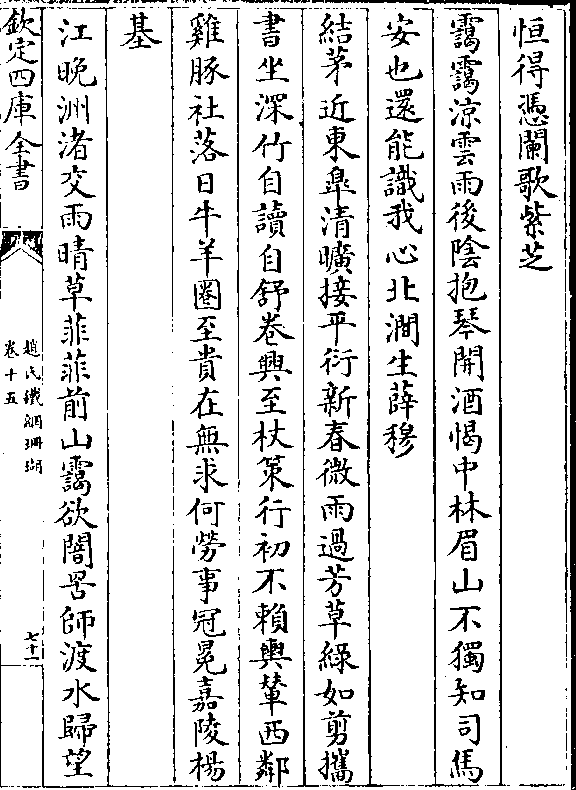 恒得憑闌歌紫芝
靄靄涼雲雨後陰抱琴開酒愒中林眉山不獨知司馬
安也還能識我心北澗生薛穆
結茅近東臯清曠接平衍新春微雨過芳草綠如剪攜
書坐深竹自讀自舒卷興至杖策行初不賴輿輦西鄰
雞豚社落日牛羊圈至貴在無求何勞事冠冕嘉陵楊
基
江晚洲渚交雨晴草菲菲前山靄欲闇罟師渡水歸望
欽定四庫全書
趙氏鐵網珊瑚
卷十五
七十一